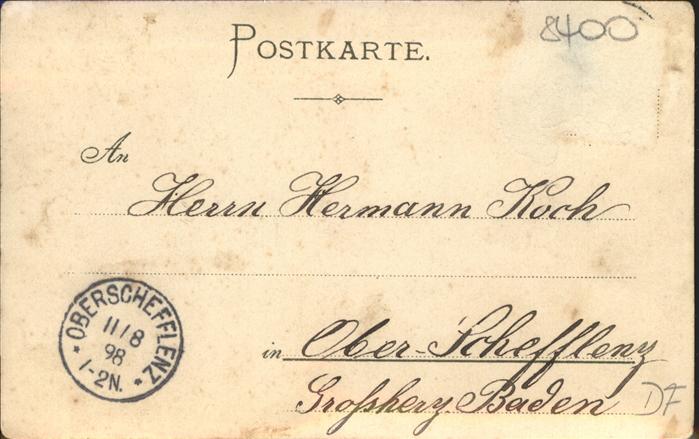 8400
POSTKARTE.
An
Herrn Hermann Koch
in Ober-Schefflenz
Grossherz. Baden
DF
* OBERSCHEFFLENZ *
11/8
98
1-2N.